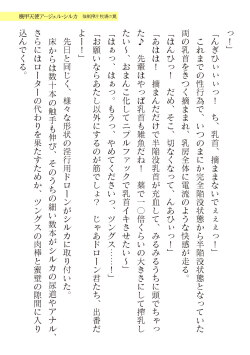 機甲天使アージェル・シルカ
っ！」
「んぎひぃぃっ！　ち、乳首、摘ままないでぇぇぇっ！」
　これまでの性行為で、いつのまにか完全陥没状態から半陥没状態となっていた両の乳首をきつく摘ままれ、乳房全体に電流のような快感が走る。
「はんひっ！　だめ、そこ、切なくなって、んあひぃっ！」
「あはは！　摘まんだだけで半陥没乳首が充血して、みるみるうちに頭でちゃった♪　先輩はやっぱり乳首も雌魚だね！　薬で一〇倍くらいの大きさにして搾乳したい〜、おまんこ化してニプルファックで乳首イキさせたい〜」
「はぁっ、はぁっ、もうっ、やめてくださいっ、ツングス……！」
「お願いならあたし以外にするのが筋でしょ？　じゃあドローン君たち、出番だよー！」
　先日と同じく、様々な形状の淫行用ドローンがシルカに取り付いた。
　床からは数十本の触手も伸び、そのうちの細い数本がシルカの尿道やアナル、さらにはローターの代わりを果たすためか、ツングスの肉棒と蜜壺の隙間に入り込んでくる。